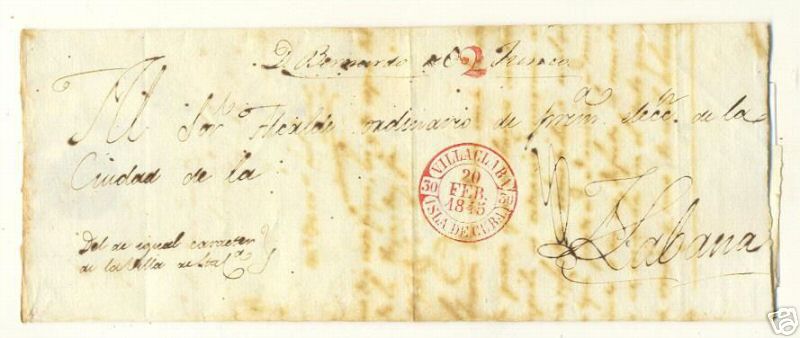 Dn Bernardo
2
Al Sor. Alcalde ordinario de prima. elecn. de la
Ciudad de la
Habana
Del de igual caracter
de la Villa de Sta.
VILLACLARA
30 30
20
FEB.
1845
ISLA DE CUBA